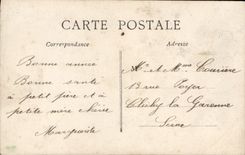 CARTE POSTALE
Correspondance
Adresse
Bonne année
Bonne santé
à petit père et à
petite mère chérie
Marguerite
Mr et Mme
8 rue
Clichy la Garenne
Seine